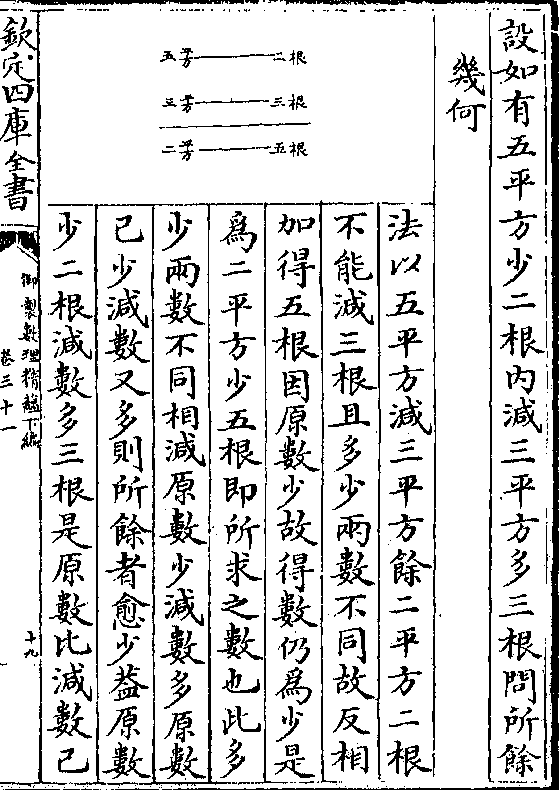 設如有五平方少二根內減三平方多三根問所餘
幾何
五平方二根
三平方三根
二平方五根
法以五平方減三平方餘二平方二根
不能減三根且多少兩數不同故反相
加得五根因原數少故得數仍為少是
為二平方少五根即所求之數也此多
少兩數不同相減原數少減數多原數
已少減數又多則所餘者愈少葢原數
少二根減數多三根是原數比減數已
欽定四庫全書
御製數理精蘊下編
卷三十一
十九